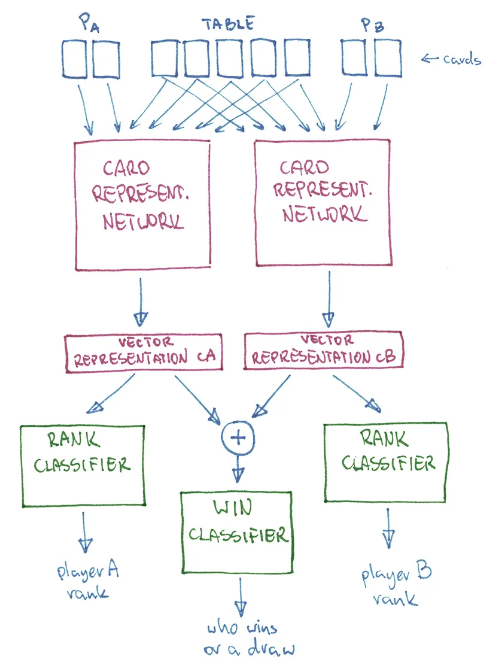 PA TABLE PB
← cards
CARD
REPRESENT.
NETWORK
CARD
REPRESENT.
NETWORK
VECTOR
REPRESENTATION CA
VECTOR
REPRESENTATION CB
RANK
CLASSIFIER
+
RANK
CLASSIFIER
WIN
CLASSIFIER
player A
rank
player B
rank
who wins
or a draw